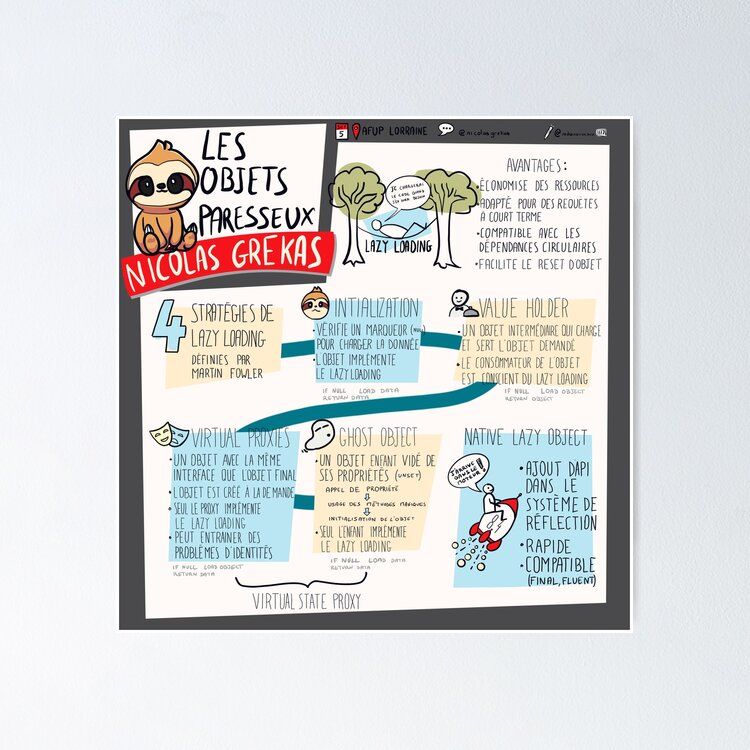 5
AFUP LORRAINE
@nicolasgrekas
LES
OBJETS
PARESSEUX
NICOLAS GREKAS
JE CHARGERAI
LE CODE QUAND
LAZY LOADING
AVANTAGES:
•ÉCONOMISE DES RESSOURCES
•ADAPTÉ POUR DES REQUETES
À COURT TERME
•COMPATIBLE AVEC LES
DÉPENDANCES CIRCULAIRES
•FACILITE LE RESET D'OBJET
4
STRATÉGIES DE
LAZY LOADING
DÉFINIES PAR
MARTIN FOWLER
INTIALIZATION
•VÉRIFIE UN MARQUEUR (NULL)
POUR CHARGER LA DONNÉE
•L'OBJET IMPLÉMENTE
LE LAZY LOADING
IF NULL LOAD DATA
RETURN DATA
VALUE HOLDER
•UN OBJET INTERMÉDIAIRE QUI CHARGE
ET SERT L'OBJET DEMANDÉ
•LE CONSOMMATEUR DE L'OBJET
EST CONSCIENT DU LAZY LOADING
IF NULL LOAD OBJECT
RETURN OBJECT
VIRTUAL PROXIES
•UN OBJET AVEC LA MÊME
INTERFACE QUE L'OBJET FINAL
•L'OBJET EST CRÉÉ À LA DEMANDE
•SEUL LE PROXY IMPLÉMENTE
LE LAZY LOADING
•PEUT ENTRAINER DES
PROBLÈMES D'IDENTITÉS
IF NULL LOAD OBJECT
RETURN DATA
GHOST OBJECT
•UN OBJET ENFANT VIDÉ DE
SES PROPRIÉTÉS (UNSET)
APPEL DE PROPRIÉTÉ
USAGE DES MÉTHODES MAGIQUES
INITIALISATION DE L'OBJET
•SEUL L'ENFANT IMPLÉMENTE
LE LAZY LOADING
IF NULL LOAD DATA
RETURN DATA
VIRTUAL STATE PROXY
NATIVE LAZY OBJECT
J'ARRIVE
DANS LE
MOTEUR!
•AJOUT D'API
DANS LE
SYSTÈME DE
RÉFLECTION
•RAPIDE
•COMPATIBLE
(FINAL, FLUENT)